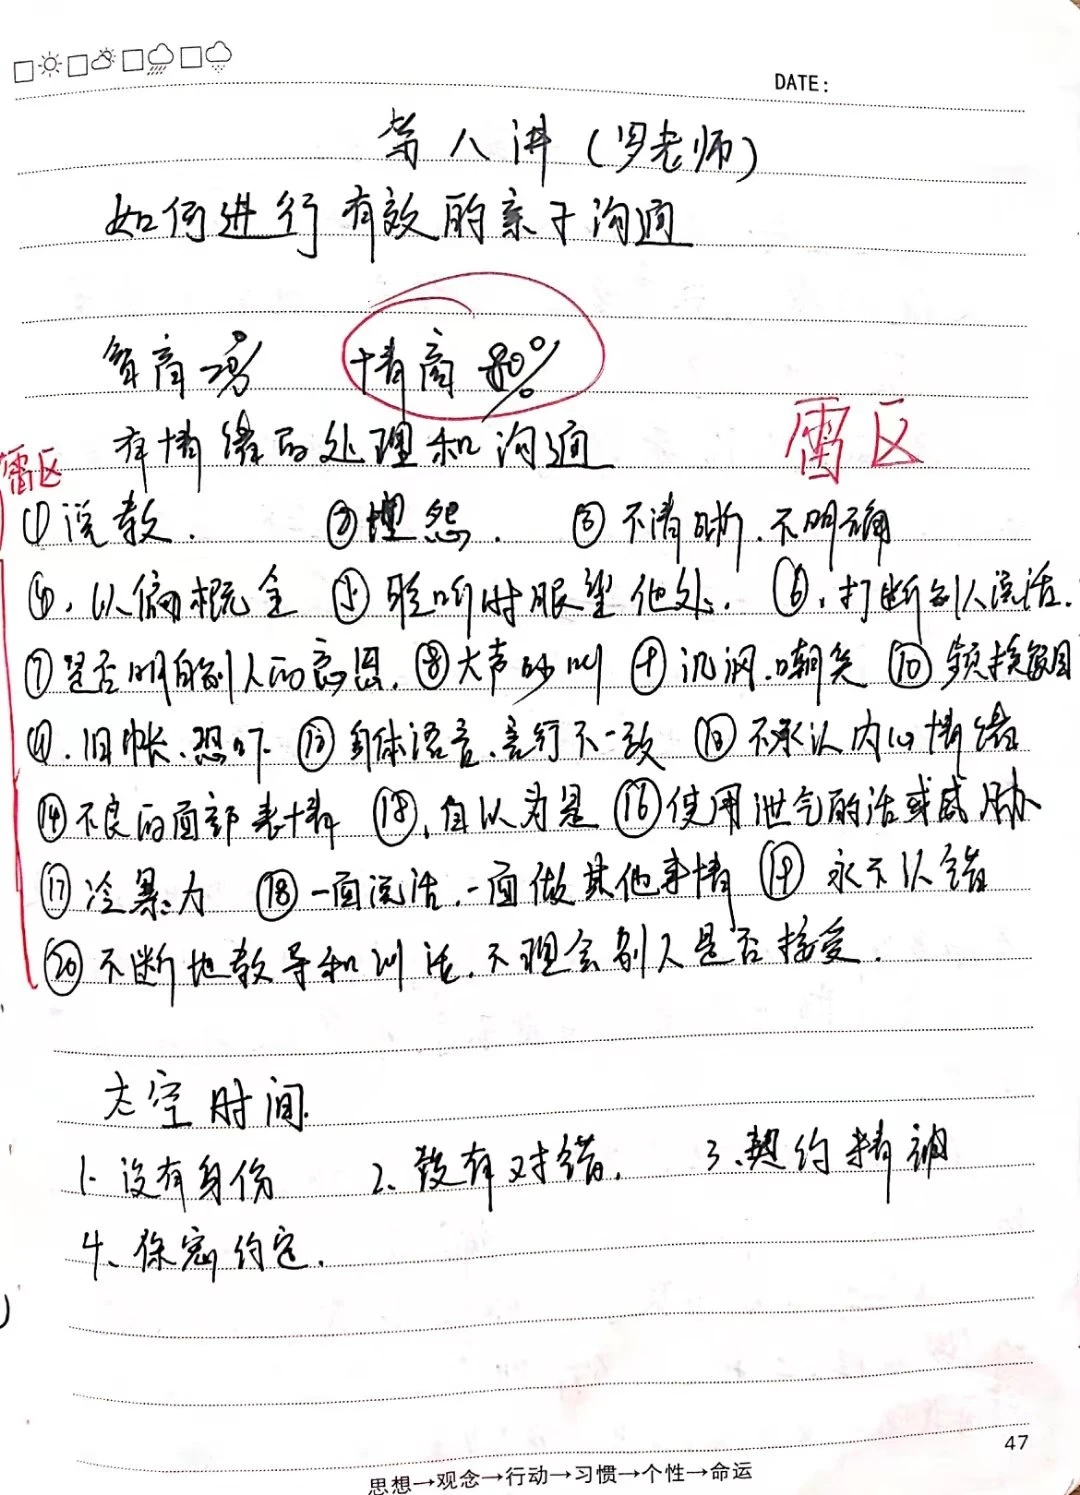 DATE:
第八讲（罗老师）
如何进行有效的亲子沟通
智商 情商 80%
有情绪的处理和沟通
雷区
雷区
①说教. ②埋怨. ③不清晰.不明确
④、以偏概全 ⑤聆听时眼望他处. ⑥、打断别人说话.
⑦是否明白别人的意思. ⑧大声吵叫 ⑨讥讽.嘲笑 ⑩频换
⑪.旧帐、恐吓 ⑫身体语言、言行不一致 ⑬不承认内心情绪
⑭不良的面部表情 ⑮、自以为是 ⑯使用泄气的话或威胁
⑰冷暴力 ⑱一面说话.一面做其他事情 ⑲永不认错
⑳不断地教导和训话.不理会别人是否接受.
太空时间.
1. 没有身份 2、没有对错. 3、契约精神
4、保密约定.
47
思想→观念→行动→习惯→个性→命运